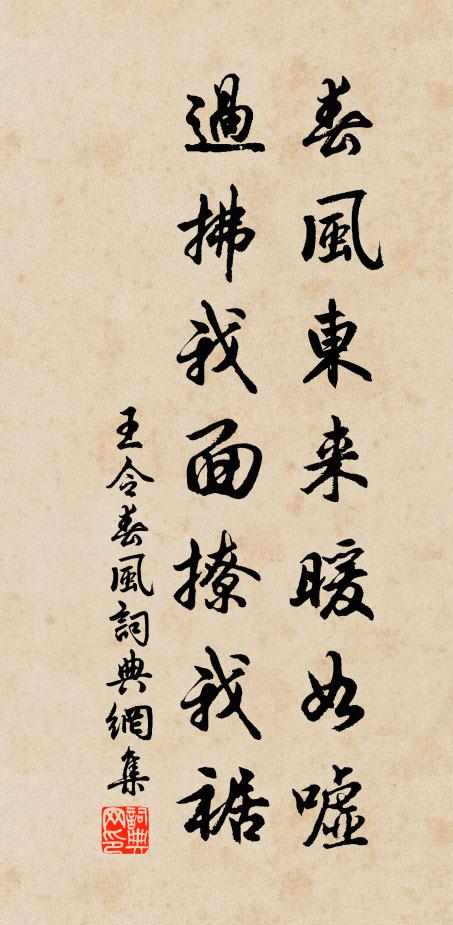 春風東来暖如噓
過拂我面撩我裾
王令春風詞典網集
詞典网印